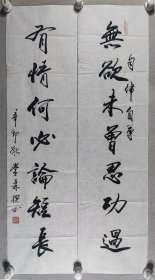 無欲未曾思功過
自律自尊
有情何必論短長
辛卯秋